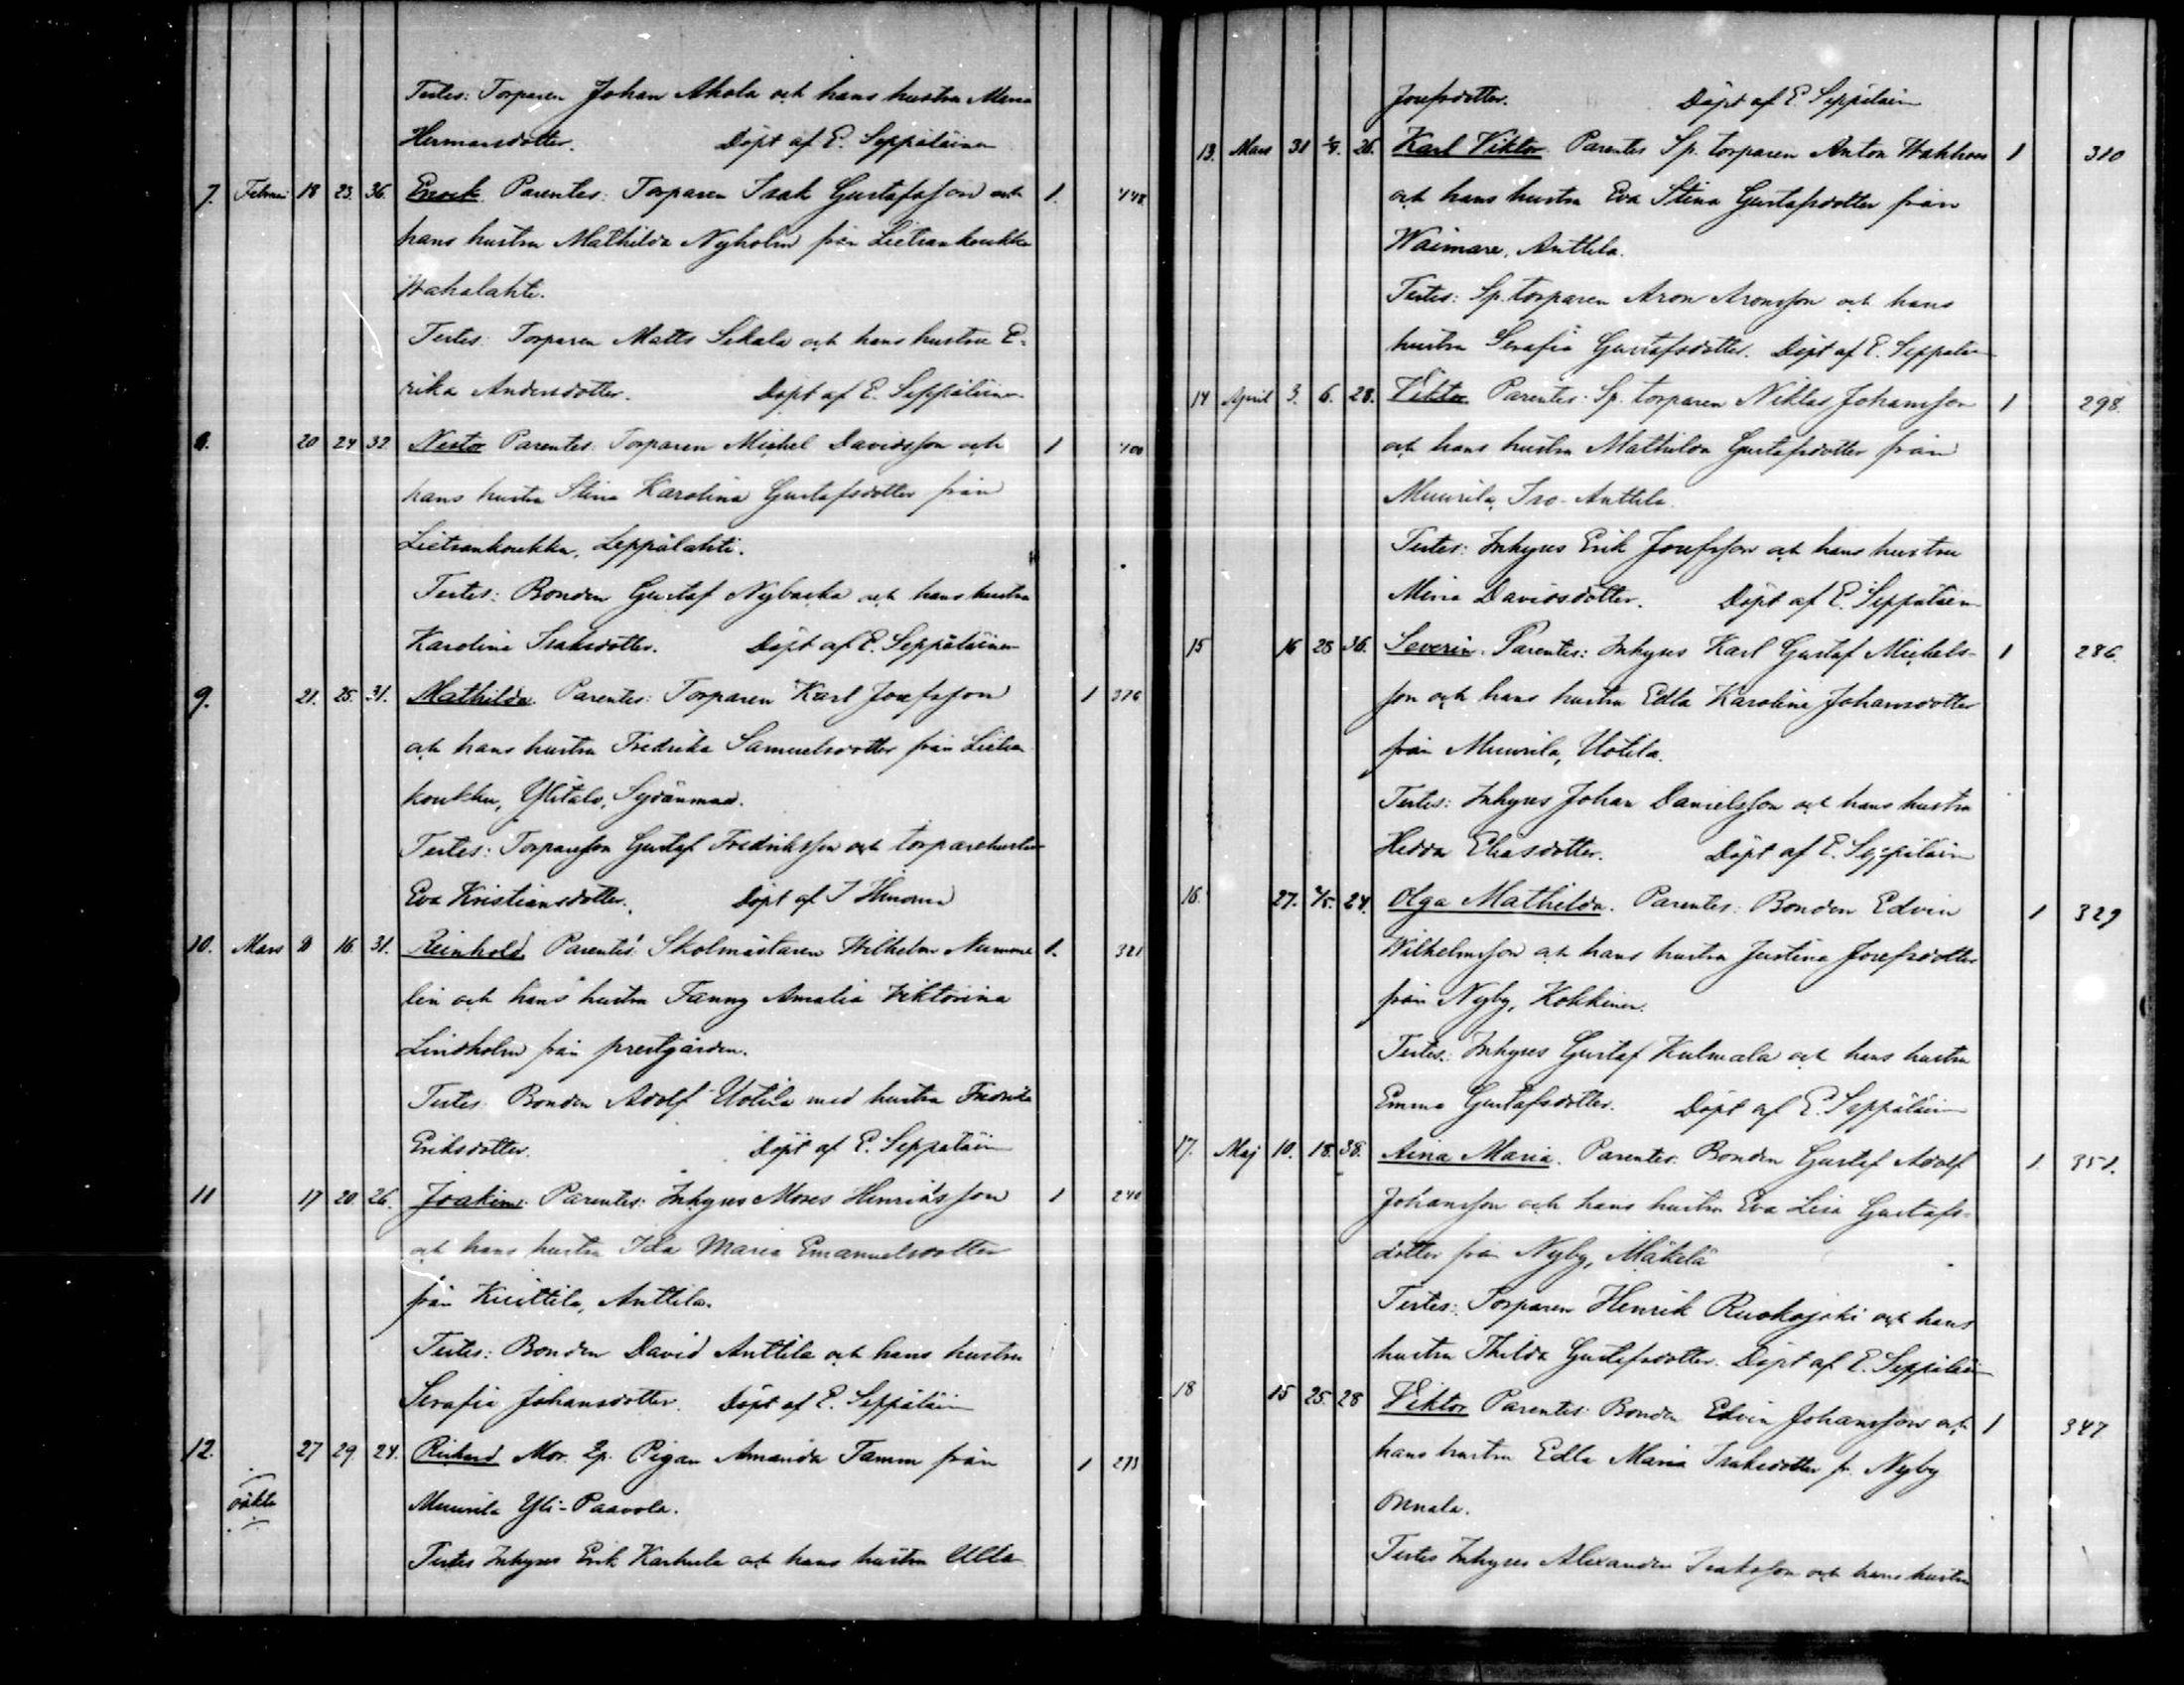 Testes: Torparen Johan Ahola och hans hustru Maria
Hermansdotter. Döpt af E. Seppäläinen
7. Februari 18 23. 36. Enock. Parentes: Torparen Isak Gustafsson och 1. 448
hans hustru Mathilda Nyholm från Lietsankoukku
Wahalahti.
Testes: Torparen Matts Sikala och hans hustru E-
rika Andersdotter. Döpt af E. Seppäläinen
8. 20 24 32 Nestor Parentes: Torparen Michel Davidsson och 1 400
hans hustru Stina Karolina Gustafsdotter från
Lietsankoukku, Leppälahti.
Testes: Bonden Gustaf Nybacka och hans hustru
Karolina Isaksdotter. Döpt af E. Seppäläinen
9. 21. 25. 31. Mathilda. Parentes: Torparen Karl Josefsson 1 376
och hans hustru Fredrika Samuelsdotter från Lietsan
koukku, Ylitalo, Sydänmaa.
Testes: Torpareson Gustaf Fredriksson och torparehustru
Eva Kristiansdotter. Döpt af J
10. Mars 8 16. 31. Reinhold. Parentes: Skolmästaren Wilhelm Numme 1. 321
lin och hans hustru Fanny Amalia Viktorina
Lindholm från prestgården.
Testes: Bonden Adolf Uotila med hustru Fredrika
Eriksdotter. Döpt af E. Seppäläin
11 17 20. 26. Joakim. Parentes: Inhyses Moses Henriksson 1 240
och hans hustru Ida Maria Emanuelsdotter
från Kuittila, Anttila.
Testes: Bonden David Anttila och hans hustru
Serafia Johansdotter. Döpt af E. Seppäläin
12. 27 29. 24. Richard Mor: Pigan Amanda Tamm från 1 273
oäkta Muurila Yli-Paavola.
Testes Inhyses Erik Karhula och hans hustru Ulla
Josefsdotter. Döpt af E. Seppäläin
13. Mars 31 26. Karl Viktor. Parentes Sp. torparen Anton Wahlroos 1 310
och hans hustru Eva Stina Gustafsdotter från
Waimare, Anttila.
Testes: Sp. torparen Aron Aronsson och hans
hustru Serafia Gustafsdotter. Döpt af E. Seppäläin
14 April 3. 6. 28. Viktor Parentes: Sp. torparen Niklas Johansson 1 298.
och hans hustru Mathilda Gustafsdotter från
Muurila, Iso-Anttila.
Testes: Inhyses Erik Josefsson och hans hustru
Mina Davidsdotter. Döpt af E. Seppäläin
15 16 28 36. Severin. Parentes: Inhyses Karl Gustaf Michels- 1 286.
son och hans hustru Edla Karolina Johansdotter
från Muurila, Uotila.
Testes: Inhyses Johan Danielsson och hans hustru
Hedda Eliasdotter. Döpt af E. Seppäläin
16. 27. 24. Olga Mathilda. Parentes: Bonden Edvin 1 329
Wilhelmsson och hans hustru Justina Josefsdotter
från Nyby, Kokkinen.
Testes: Inhyses Gustaf Kulmala och hans hustru
Emma Gustafsdotter. Döpt af E. Seppäläin
17. Maj 10. 18. 38. Aina Maria. Parentes: Bonden Gustaf Adolf 1. 351.
Johansson och hans hustru Eva Lisa Gustafs-
dotter från Nyby, Mäkelä
Testes: Torparen Henrik Ruokojoki och hans
hustru Thilda Gustafsdotter. Döpt af E. Seppäläin
18 15 25. 28 Viktor Parentes: Bonden Edvin Johansson och 1 347
hans hustru Edla Maria Isaksdotter fr. Nyby
Onnela.
Testes Inhyses Alexander Isaksson och hans hustru